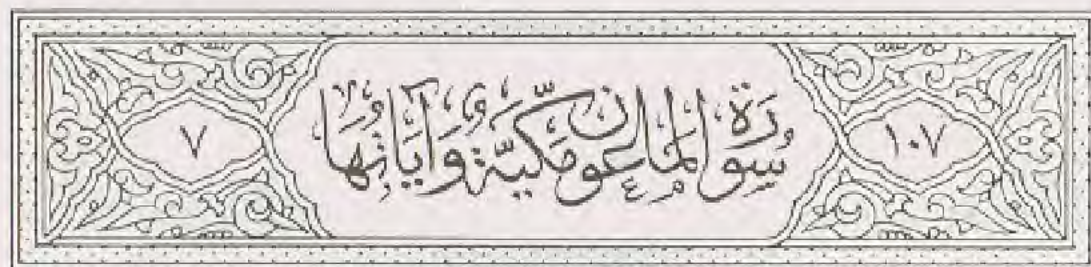 ١٠٧ سُورَةُ الْمَاعُونِ مَكِّيَّةٌ وَآيَاتُهَا ٧